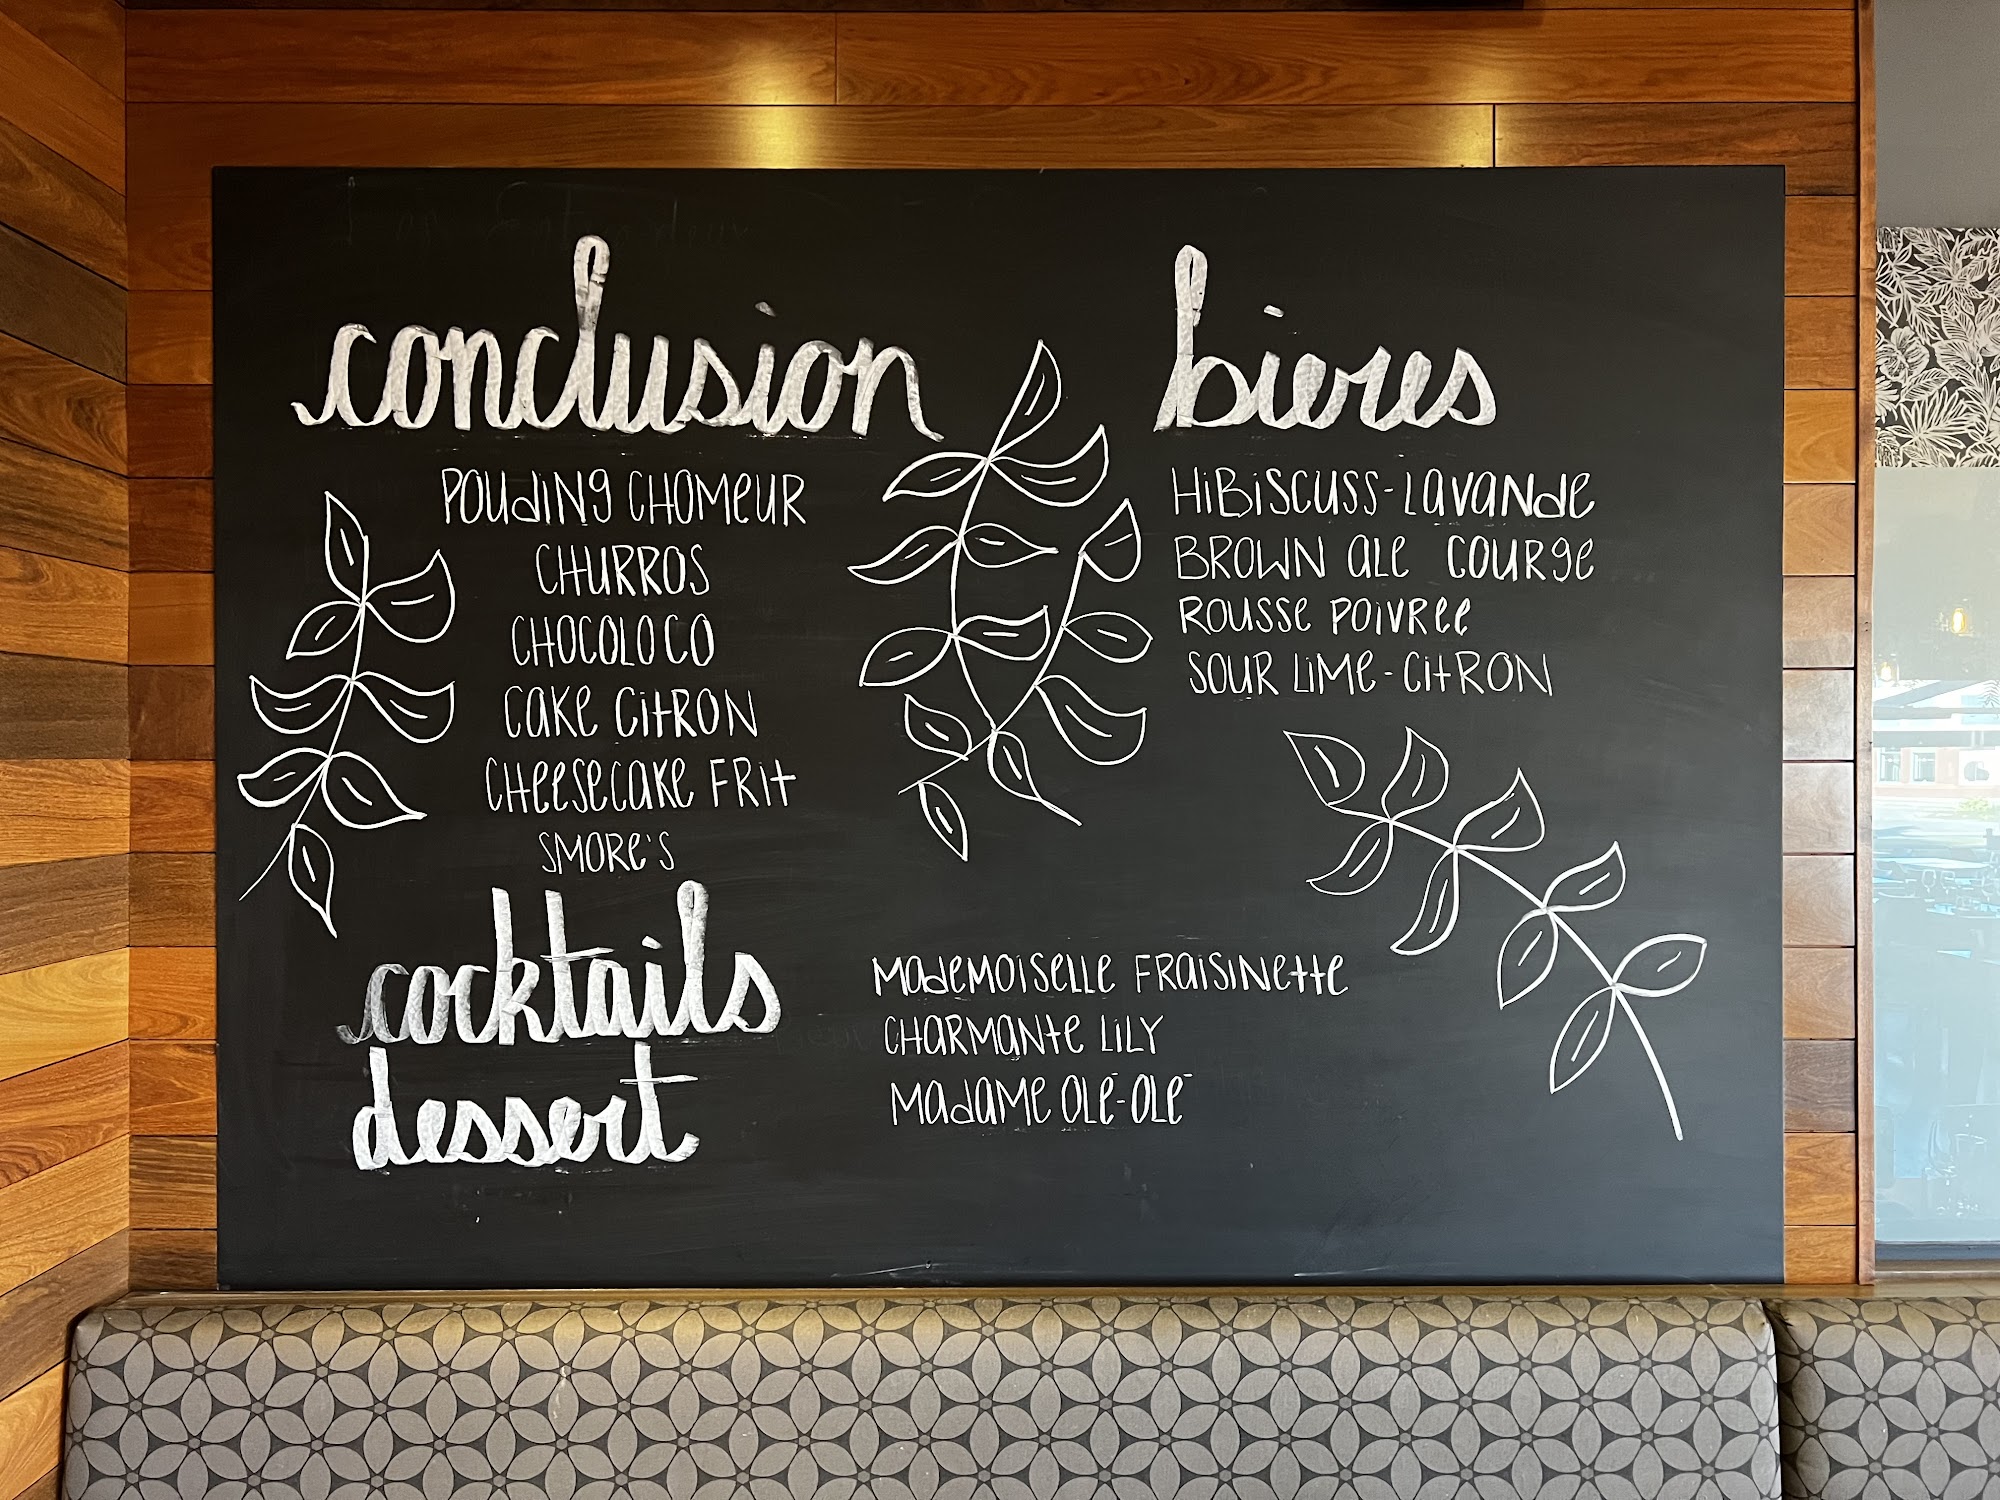 conclusion
POUDING CHOMEUR
CHURROS
CHOCOLOCO
CAKE CITRON
CHEESECAKE FRIT
SMORE'S
bieres
HIBISCUSS-LAVANDE
BROWN ALE COURGE
ROUSSE POIVREE
SOUR LIME-CITRON
cocktails
dessert
MADEMOISELLE FRAISINETTE
CHARMANTE LILY
MADAME OLÉ-OLÉ